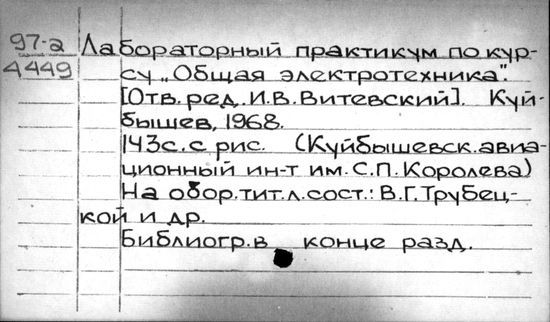 97-2 Лабораторный практикум по кур-
4449 су „Общая электротехника".
[Отв. ред. И.В. Витевский]. Куй-
бышев, 1968.
143с. с рис. (Куйбышевск. авиа-
ционный ин-т им. С.П. Королева)
На обор. тит. л. сост.: В.Г. Трубец-
кой и др.
Библиогр. в конце разд.